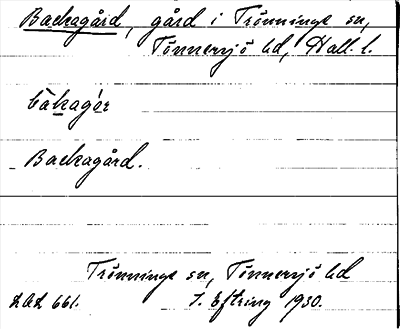 Backagård, gård i Trönninge sn,
Tönnersjö hd, Hall. l.
bàkagǫ́r
Backagård.
Trönninge sn, Tönnersjö hd
LAL 661. J. Eftring 1930.